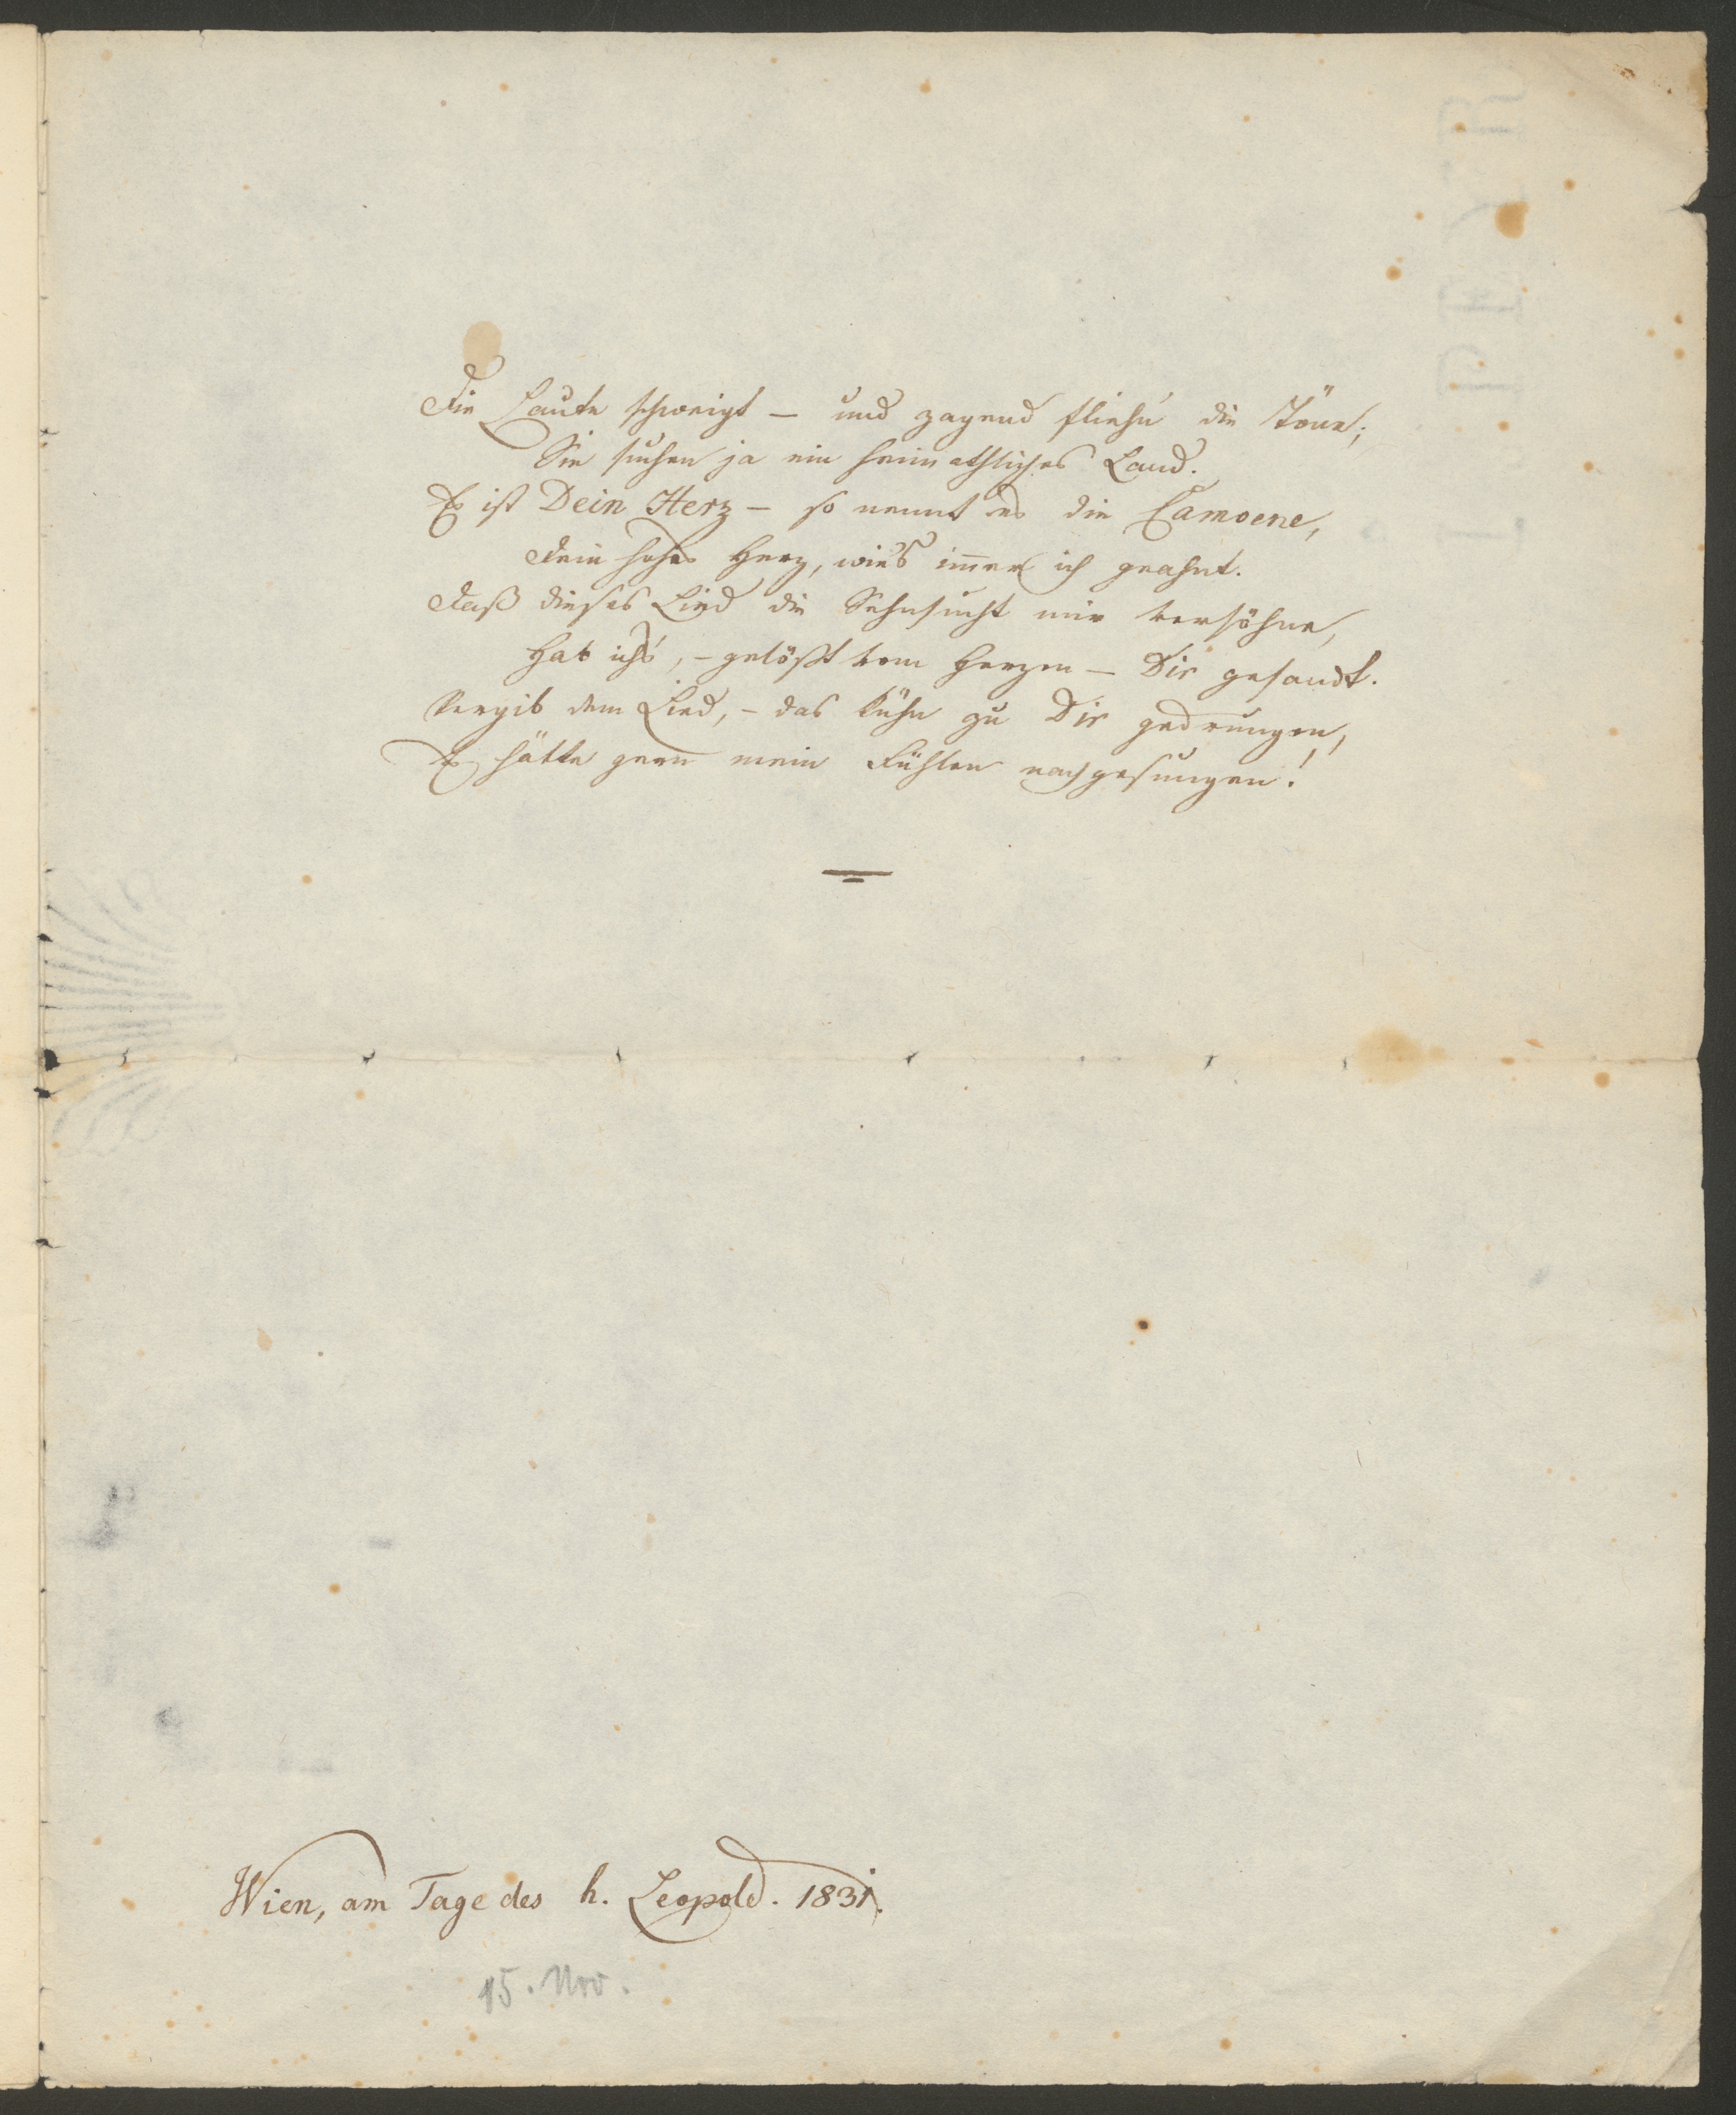 Die Laute schweigt – und zagend flieh'n die Töne;
Sie suchen ja ein heimathliches Land.
Es ist Dein Herz – so nennt es die Camoene,
Dein hohes Herz, wie's im̄er ich geahnt.
Daß dieses Lied die Sehnsucht mir versöhne,
Hab ich's, – gelößt vom Herzen – Dir gesandt.
Vergib dem Lied, – das kühn zu Dir gedrungen,
Es hätte gern mein Fühlen nachgesungen!
Wien, am Tage des h. Leopold. 1831.
15. Nov.